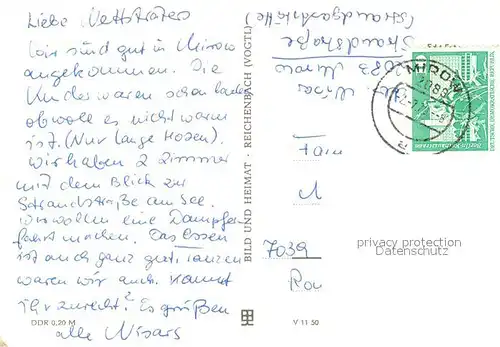 Liebe Nettsträters
Wir sind gut in Mirow
angekommen. Die
Kinder waren schon baden
obwohl es nicht warm
ist. (Nur lange Hosen).
Wir haben 2 Zimmer
mit dem Blick zur
Strandstraße am See.
Wir wollen eine Dampfer-
fahrt machen. Das Essen
ist auch ganz gut. Tanzen
waren wir auch. Kommt
ihr zurecht? Es grüßen
alle Nisars
DDR 0,20 M
BILD UND HEIMAT · REICHENBACH (VOGTL)
V 11 50
(Strandgaststätte)
Strandstraße
2083 Mirow
MIROW
2083
Fam
7039
privacy protection
Datenschutz